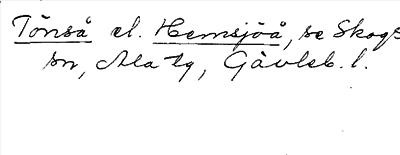 Tönså el. Hemsjöå, se Skogs
sn, Ala tg, Gävleb. l.